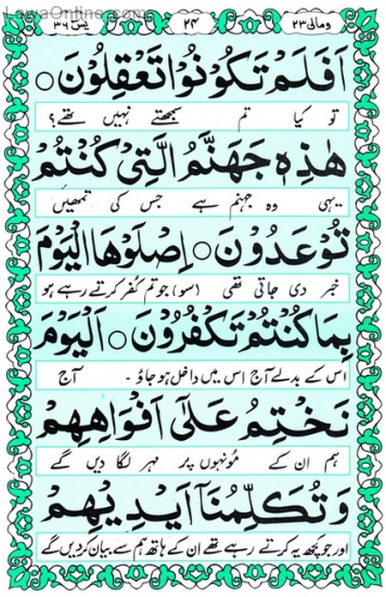 LawaOnline.com
ومالی ۲۳ ۲۴ یٰسٓ ۳۶
اَفَلَمْ تَكُوْنُوْا تَعْقِلُوْنَ ○
تو کیا تم سمجھتے نہیں تھے؟
هٰذِهٖ جَهَنَّمُ الَّتِیْ كُنْتُمْ
یہی وہ جہنم ہے جس کی تمھیں
تُوْعَدُوْنَ ○ اِصْلَوْهَا الْیَوْمَ
خبر دی جاتی تھی (سو) جو تم کفر کرتے رہے ہو
بِمَا كُنْتُمْ تَكْفُرُوْنَ ○ اَلْیَوْمَ
اس کے بدلے آج اِس میں داخل ہو جاؤ ۔ آج
نَخْتِمُ عَلٰۤی اَفْوَاهِهِمْ
ہم ان کے مونہوں پر مہر لگا دیں گے
وَ تُكَلِّمُنَاۤ اَیْدِیْهِمْ
اور جو کچھ یہ کرتے رہے تھے ان کے ہاتھ ہم سے بیان کردیں گے